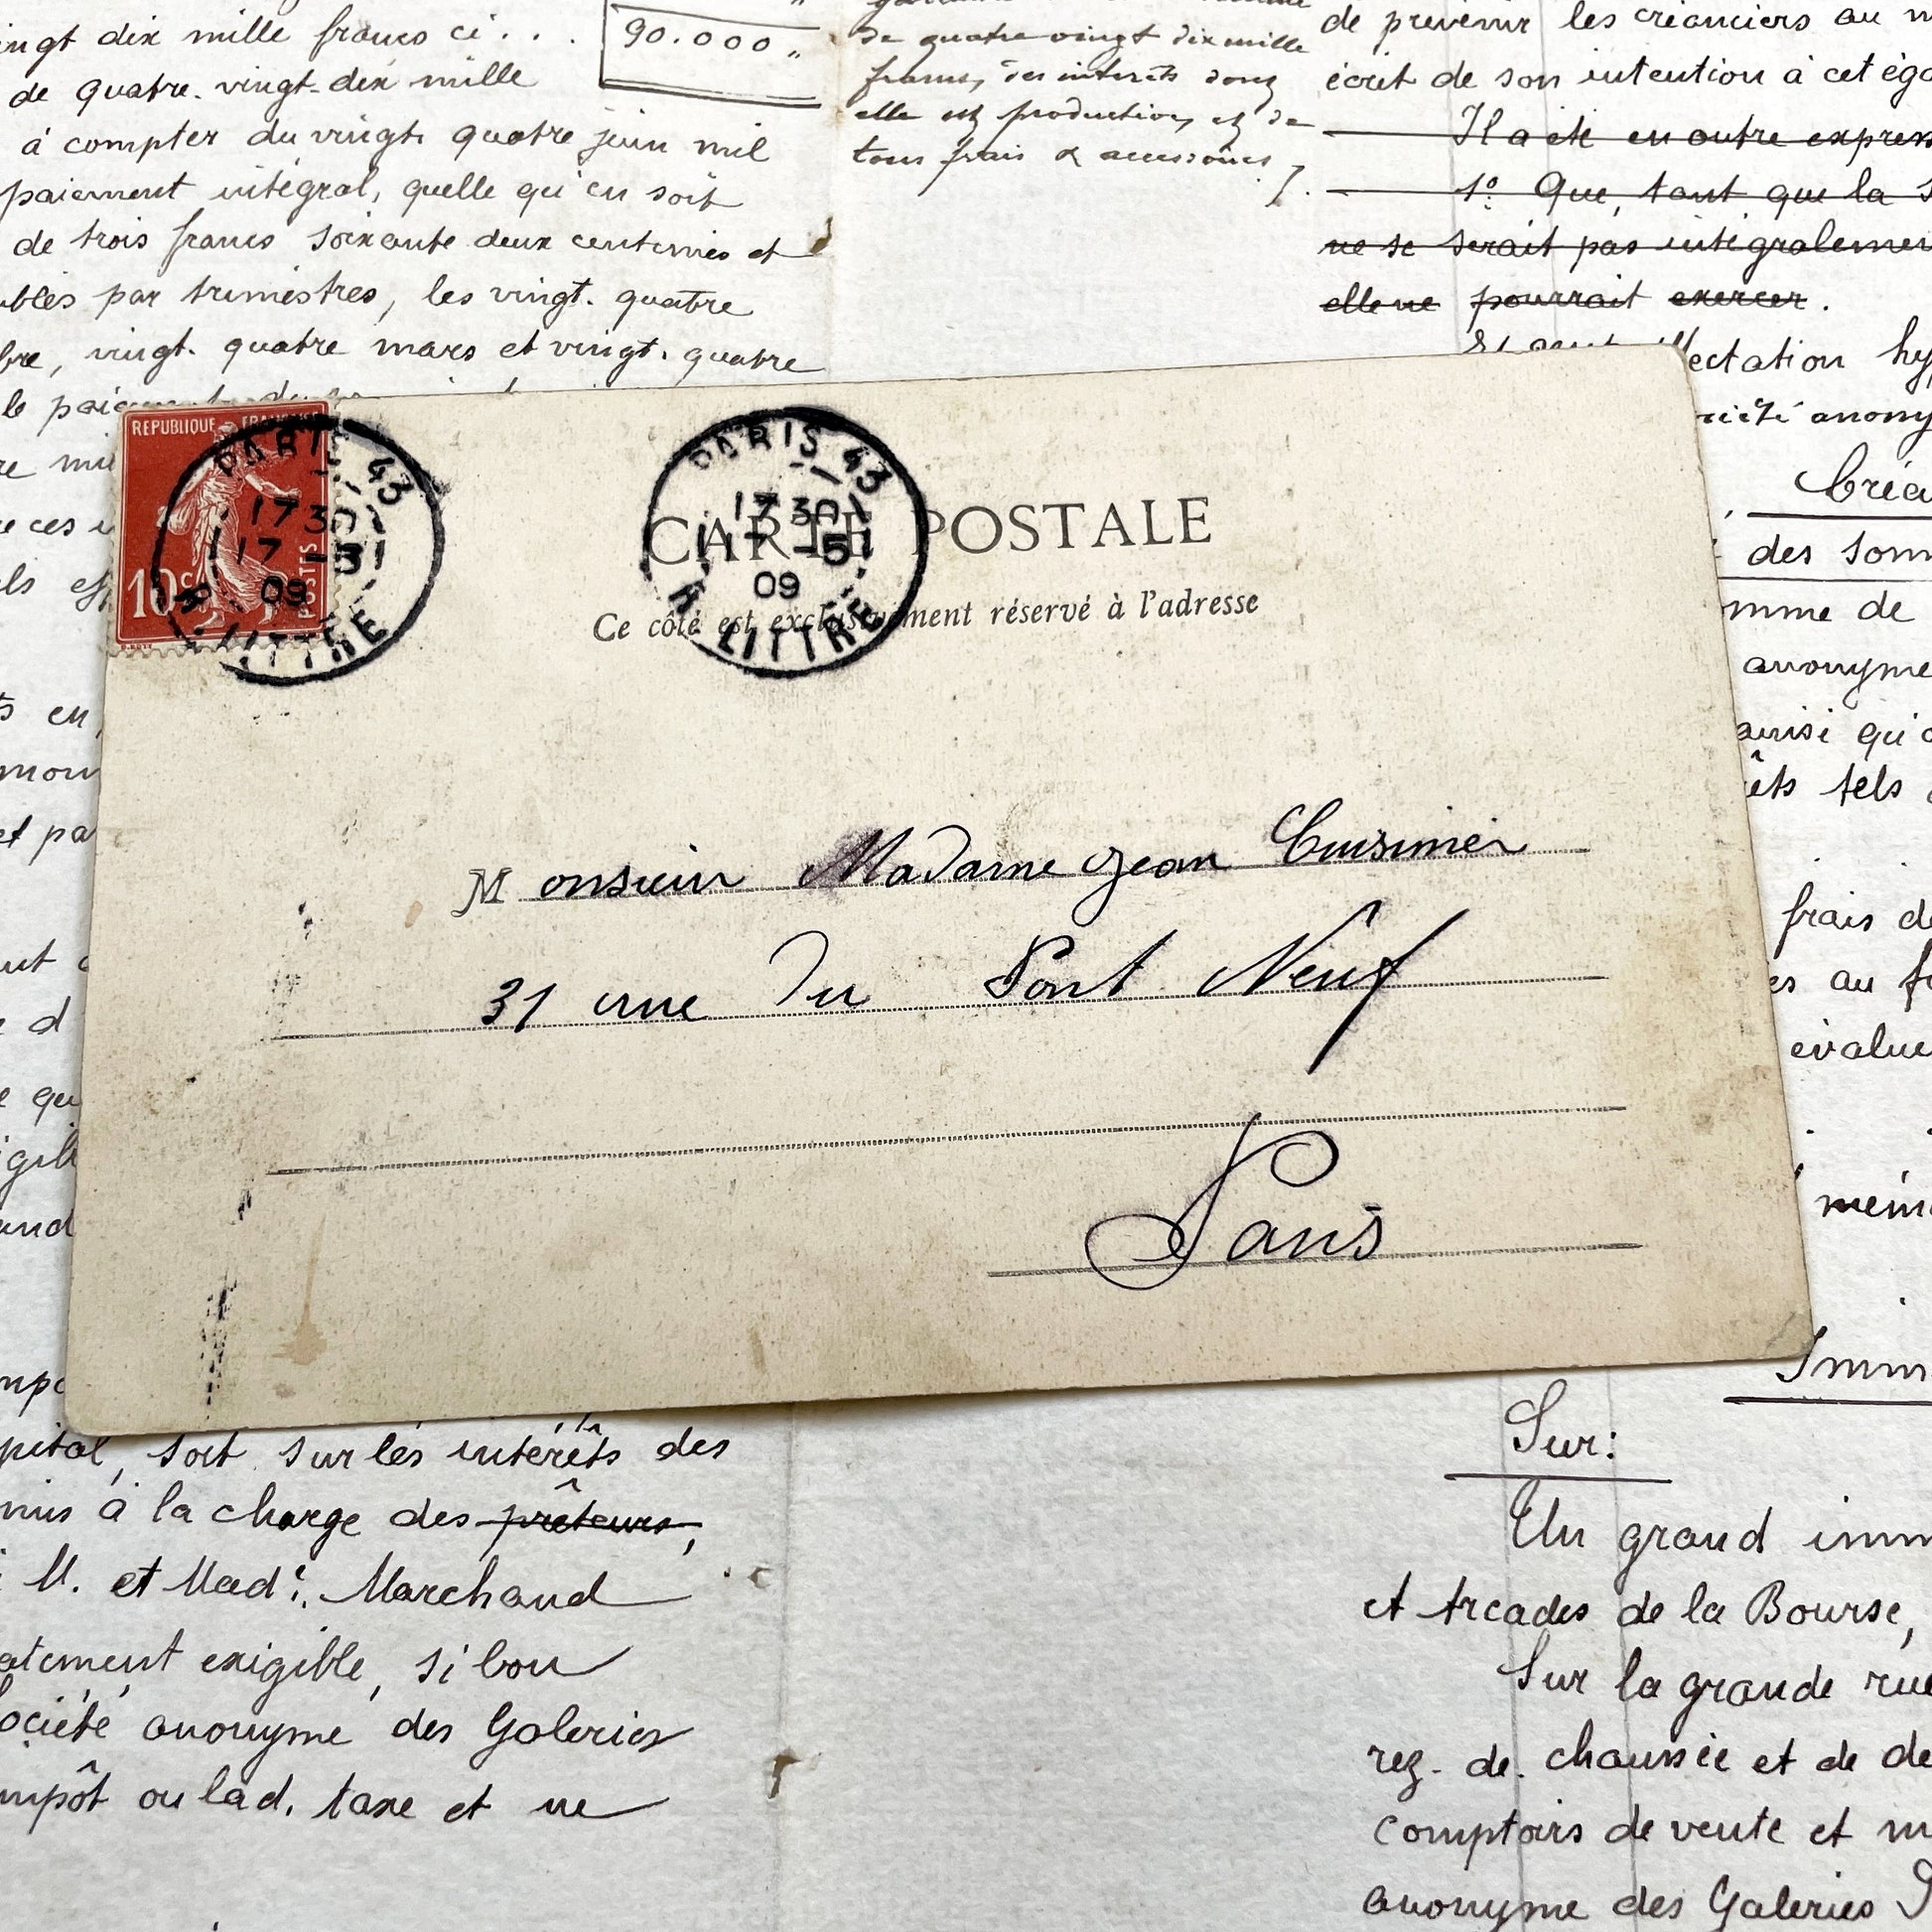 ingt dix mille francs ci . . .
90.000 "
de quatre. vingt-dix mille
à compter du vingt. quatre juin mil
paiement intégral, quelle qu'en soit
de trois francs soixante deux centimes et
par trimestres, les vingt. quatre
bre, vingt. quatre mars et vingt. quatre
le
de quatre vingt dix mille
francs, des intérêts dont
elle est production, et de
tous frais & accessoires ./.
de prévenir les créanciers au
écrit de son intention à cet éga
Il a été en outre express
1° Que, tant que la
ne se serait pas intégralemen
elle ne pourrait exercer.
ectation hy
anony
Créa
des som
mme de
anonyme
ainsi qu'
êts tels
frais de
es au
évalue
mêm
Imm
REPUBLIQUE FRANÇAISE
10c
POSTES
PARIS 43
17 30
17 -5
09
R. LITTRÉ
PARIS 43
17 30
17 -5
09
R. LITTRÉ
CARTE POSTALE
Ce côté est exclusivement réservé à l'adresse
Monsieur Madame Jean Cuisinier
31 rue du Pont Neuf
Paris
pital, soit sur les intérêts des
mis à la charge des prêteurs,
M. et Made. Marchand
atement exigible, si bon
ociété anonyme des Galeries
impôt ou lad. taxe et ne
Sur:
Un grand imm
et Arcades de la Bourse,
Sur la grande rue
rez-de-chaussée et de de
comptoirs de vente et m
anonyme des Galeries